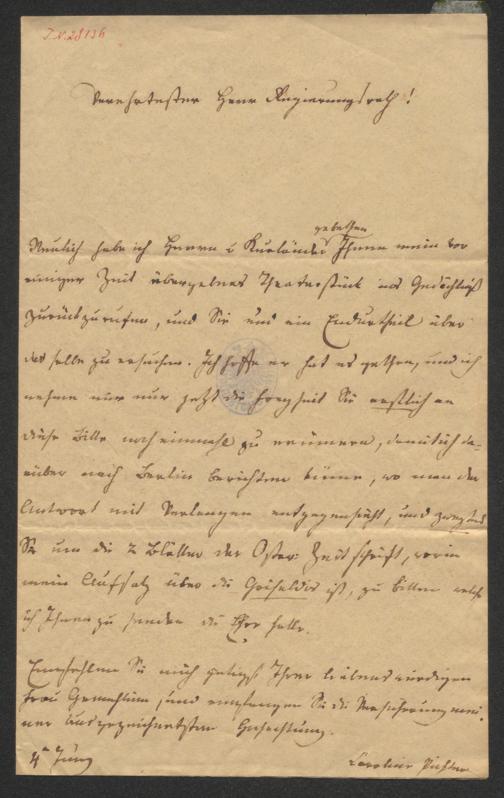 J.N. 28136
Verehrtester Herr Regierungsrath!
gebethen
Neulich habe ich Herrn v Kurländer Ihnen mein vor
einiger Zeit übergebnes Theaterstück ins Gedächtniß
zurückzurufen, und Sie und ein Endurtheil über
dasselbe zu ersuchen. Ich hoffe er hat es gethan, und ich
nehme mir nur jetzt die Freyheit Sie erstlich an
diese Bitte noch einmahl zu erinnern, damit ich da-
rüber nach Berlin berichten könne, wo man der
Antwort mit Verlangen entgegensieht, und zweytens
Sie um die 2 Blätter der Oster: Zeitschrift, worin
mein Aufsatz über die Griseldis ist, zu bitten welche
ich Ihnen zu senden die Ehre hatte.
Empfehlen Sie mich gütigst Ihrer liebenswürdigen
Frau Gemahlinn, und empfangen Sie die Versicherung mei-
ner ausgezeichnetsten Hochachtung.
4t Juny
Caroline Pichler